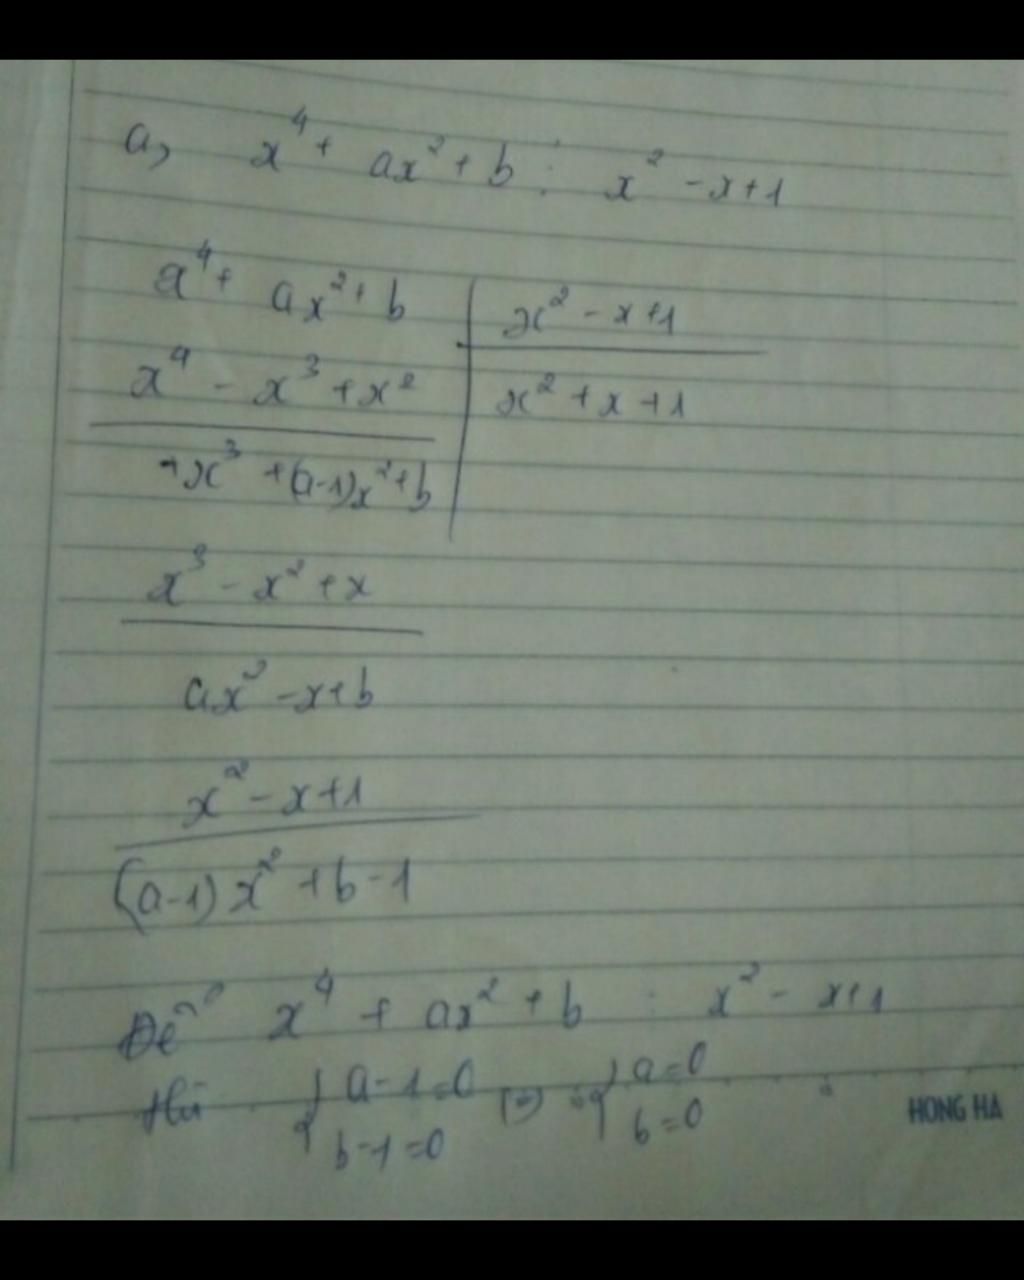 a, x⁴ + ax² + b ⋮ x² - x + 1
x⁴ + ax² + b | x² - x + 1
x⁴ - x³ + x² | x² + x + 1
+x³ + (a-1)x² + b
x³ - x² + x
ax² - x + b
x² - x + 1
(a-1)x² + b - 1
Để x⁴ + ax² + b ⋮ x² - x + 1
thì { a - 1 = 0 (=) { a = 0
b - 1 = 0 b = 0
HONG HA